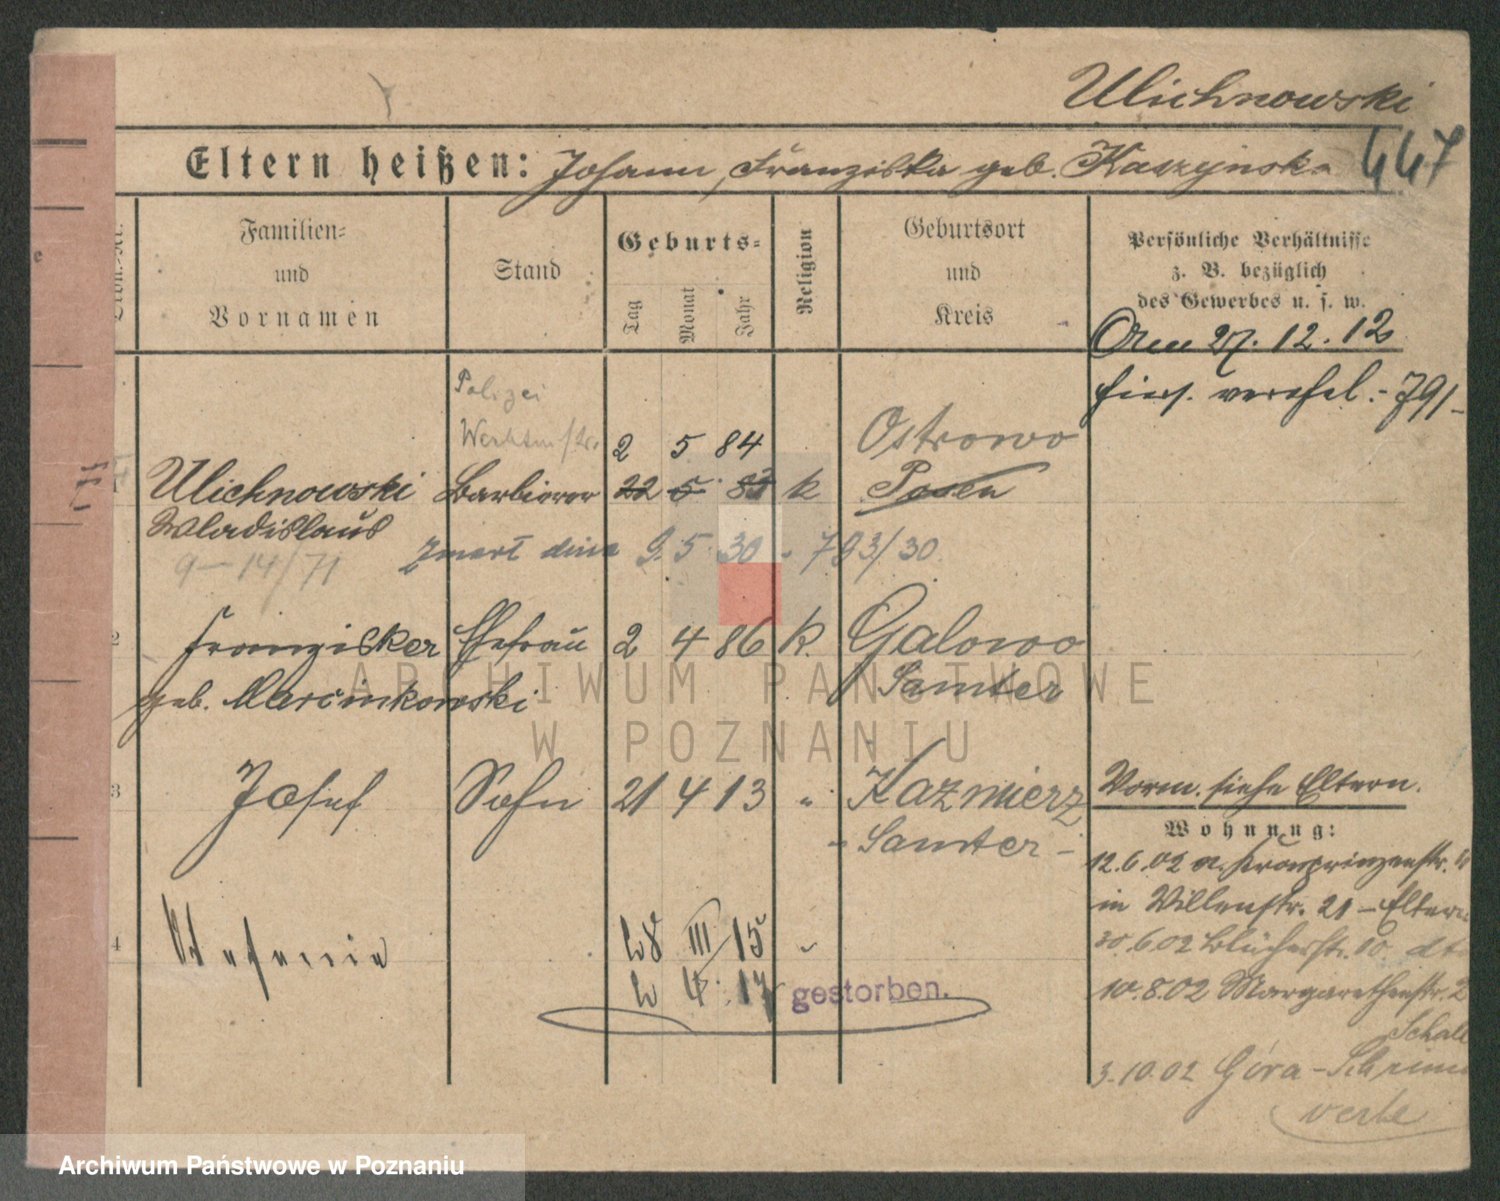 Ulichnowski
447
Eltern heißen: Johann, Franziska geb. Kaczynska
Familien=
und
Vornamen
Stand
Geburts=
Tag
Monat
Jahr
Religion
Geburtsort
und
Kreis
Persönliche Verhältnisse
z. B. bezüglich
des Gewerbes u. s. w.
27. 12. 12
791
Polizei
2 5 84 Ostrowo
1 Ulichnowski Barbierer 22 5 83 k Posen
Wladislaus
zmarł dnia 9. 5. 30 - 793/30
9-14/71
2 Franziska Ehefrau 2 4 86 k. Galowo
geb. Marcinkowski Samter
3 Josef Sohn 21 4 13 " Kazmierz
- Samter -
Vorm. siehe Eltern.
Wohnung:
12.6.02 Kronprinzenstr.
in Villenstr. 21 - Eltern
30.6.02 Blücherstr. 10.
10.8.02 Margarethenstr. 2
3.10.02 Góra - Schrimm
4 Stefania 28 III 15 "
2 4. 17 gestorben.
ARCHIWUM PAŃSTWOWE
W POZNANIU
Archiwum Państwowe w Poznaniu